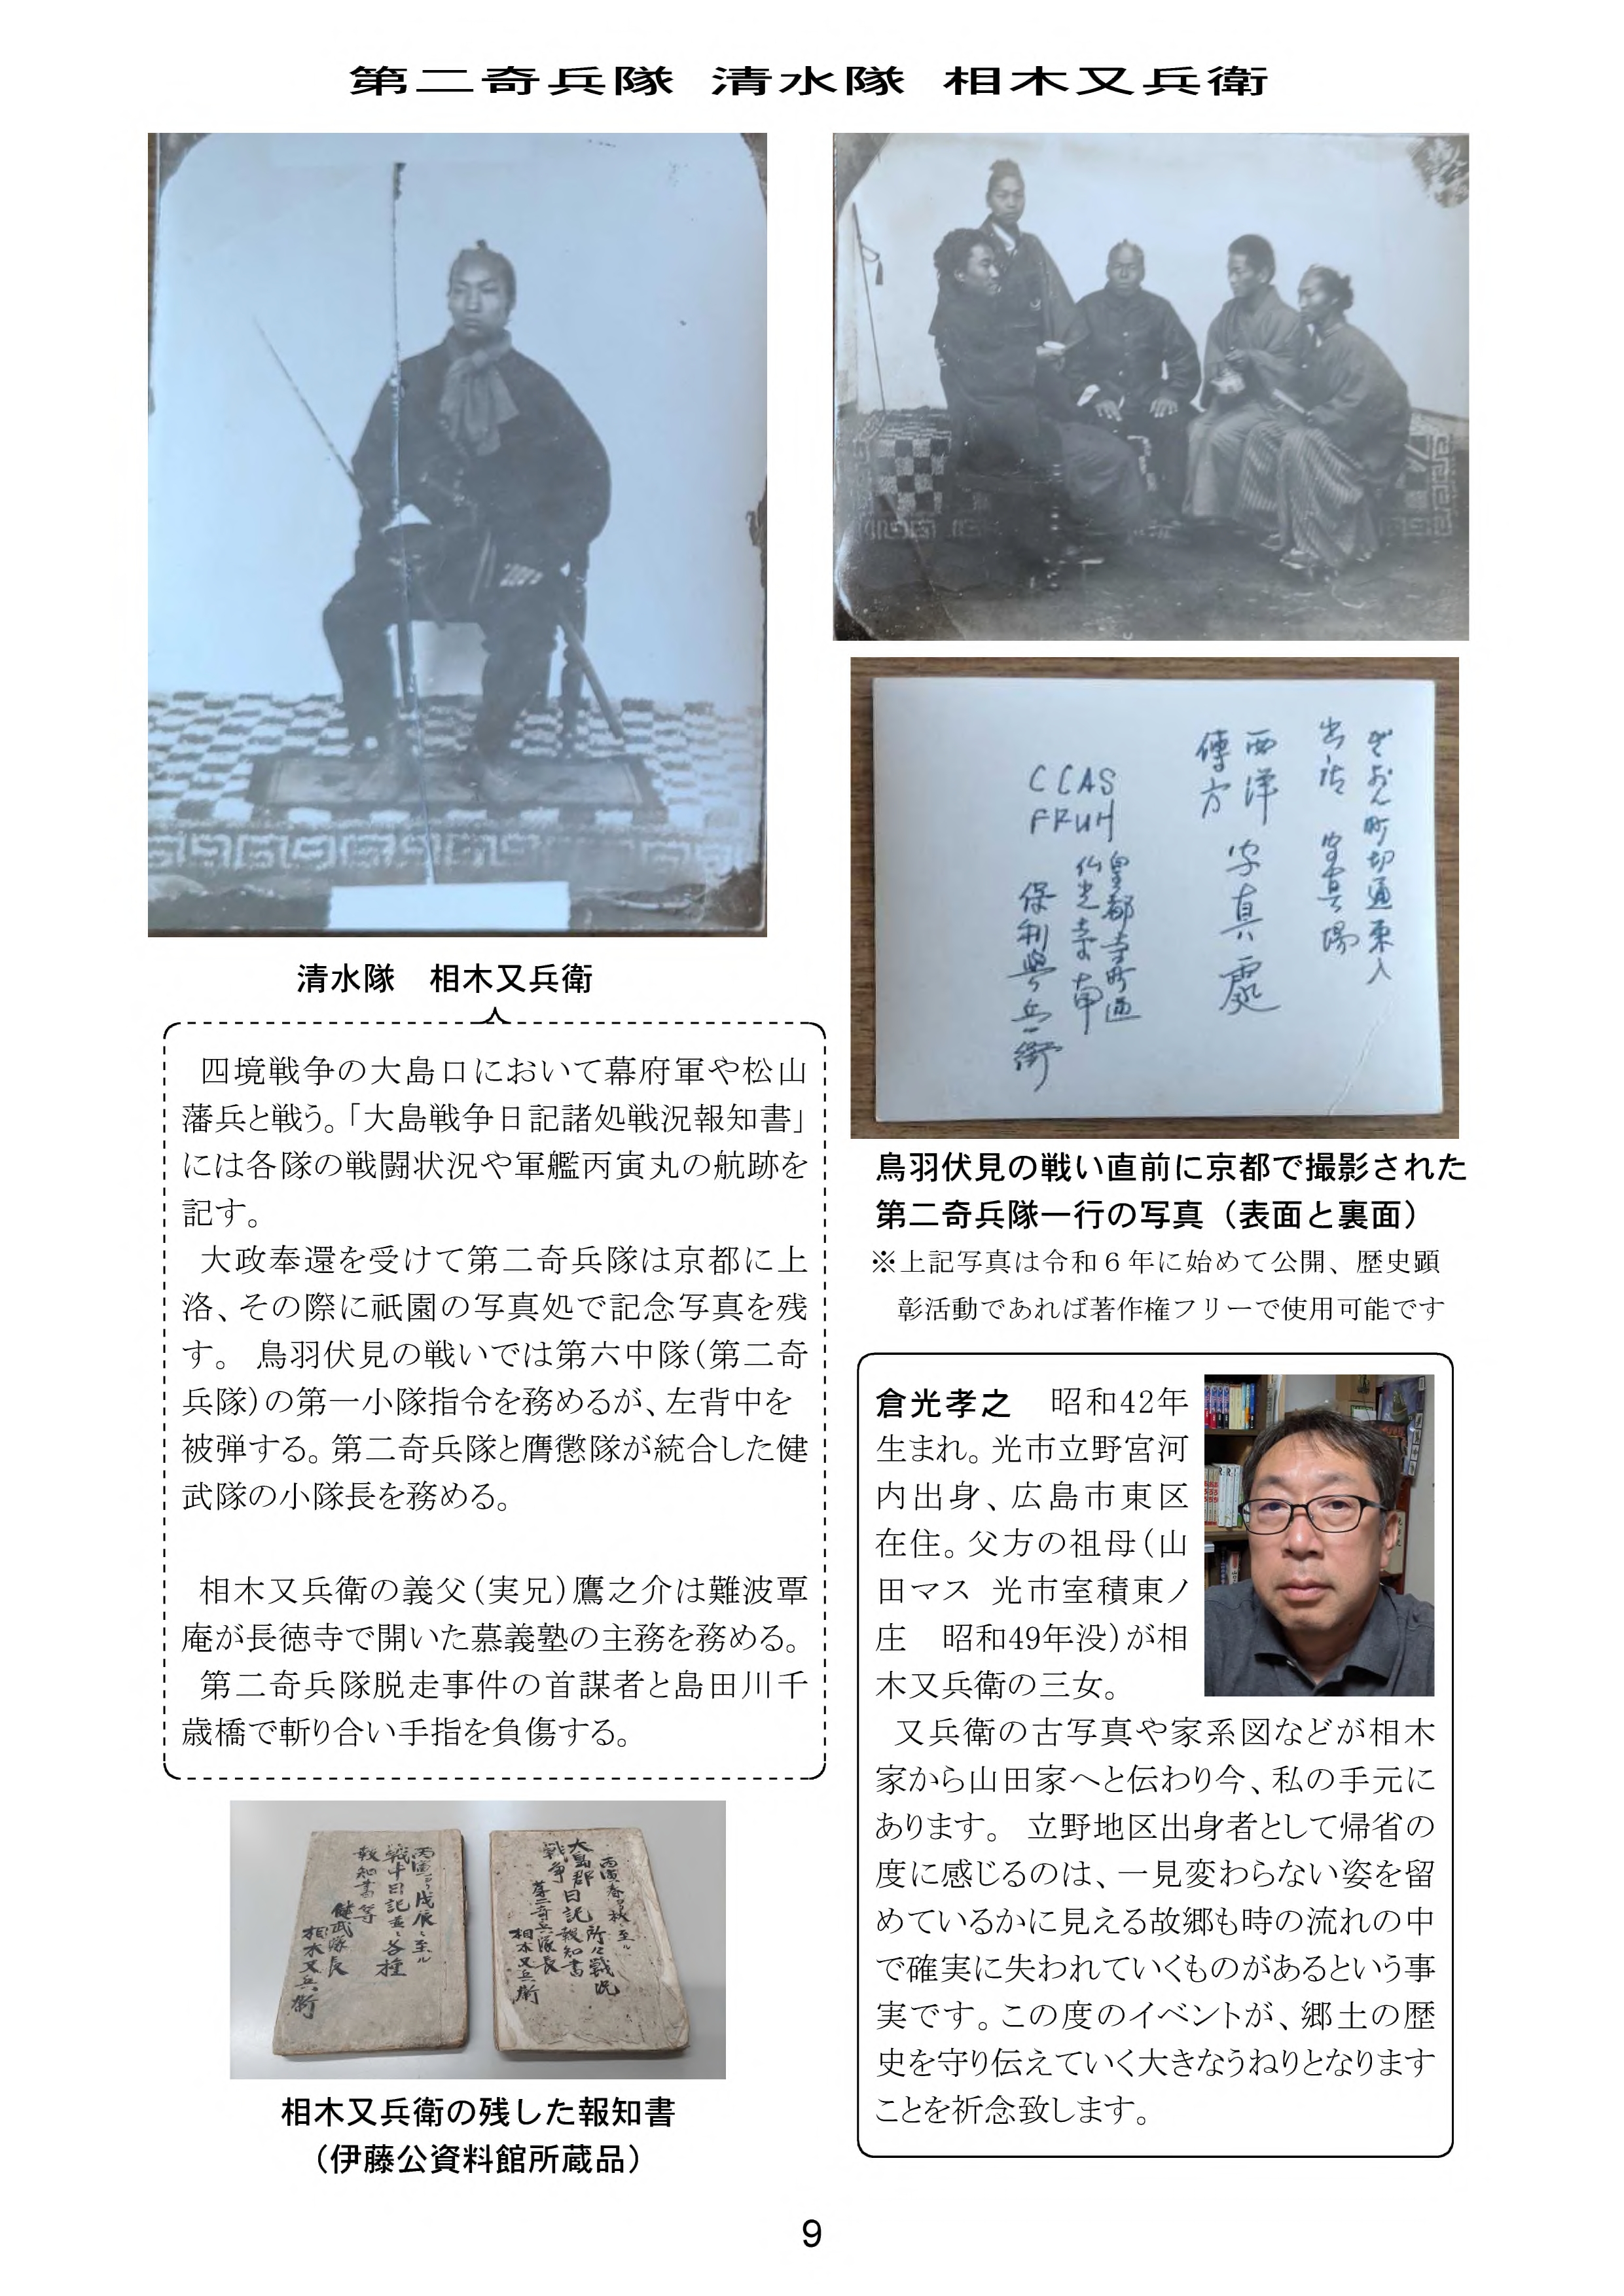 第二奇兵隊 清水隊 相木又兵衛
清水隊　相木又兵衛
四境戦争の大島口において幕府軍や松山
藩兵と戦う。「大島戦争日記諸処戦況報知書」
には各隊の戦闘状況や軍艦丙寅丸の航跡を
記す。
大政奉還を受けて第二奇兵隊は京都に上
洛、その際に祇園の写真処で記念写真を残
す。 鳥羽伏見の戦いでは第六中隊（第二奇
兵隊）の第一小隊指令を務めるが、左背中を
被弾する。第二奇兵隊と膺懲隊が統合した健
武隊の小隊長を務める。
相木又兵衛の義父（実兄）鷹之介は難波覃
庵が長徳寺で開いた慕義塾の主務を務める。
第二奇兵隊脱走事件の首謀者と島田川千
歳橋で斬り合い手指を負傷する。
丙寅ヨリ戊辰ニ至ル
戦斗日記並ニ各種
報知書等
健武隊長
相木又兵衛
丙寅春ヨリ秋ニ至ル
大島郡 所々戦況
戦争日記報知書
第二奇兵隊長
相木又兵衛
相木又兵衛の残した報知書
（伊藤公資料館所蔵品）
ぎおん町切通東入
出店 写真場
西洋 写真處
傳方
CCAS
FRUH
皇都寺町通
仏光寺南
保利與兵衛
鳥羽伏見の戦い直前に京都で撮影された
第二奇兵隊一行の写真（表面と裏面）
※上記写真は令和６年に始めて公開、歴史顕
彰活動であれば著作権フリーで使用可能です
倉光孝之　昭和42年
生まれ。光市立野宮河
内出身、広島市東区
在住。父方の祖母（山
田マス 光市室積東ノ
庄　昭和49年没）が相
木又兵衛の三女。
又兵衛の古写真や家系図などが相木
家から山田家へと伝わり今、私の手元に
あります。 立野地区出身者として帰省の
度に感じるのは、一見変わらない姿を留
めているかに見える故郷も時の流れの中
で確実に失われていくものがあるという事
実です。この度のイベントが、郷土の歴
史を守り伝えていく大きなうねりとなります
ことを祈念致します。
9